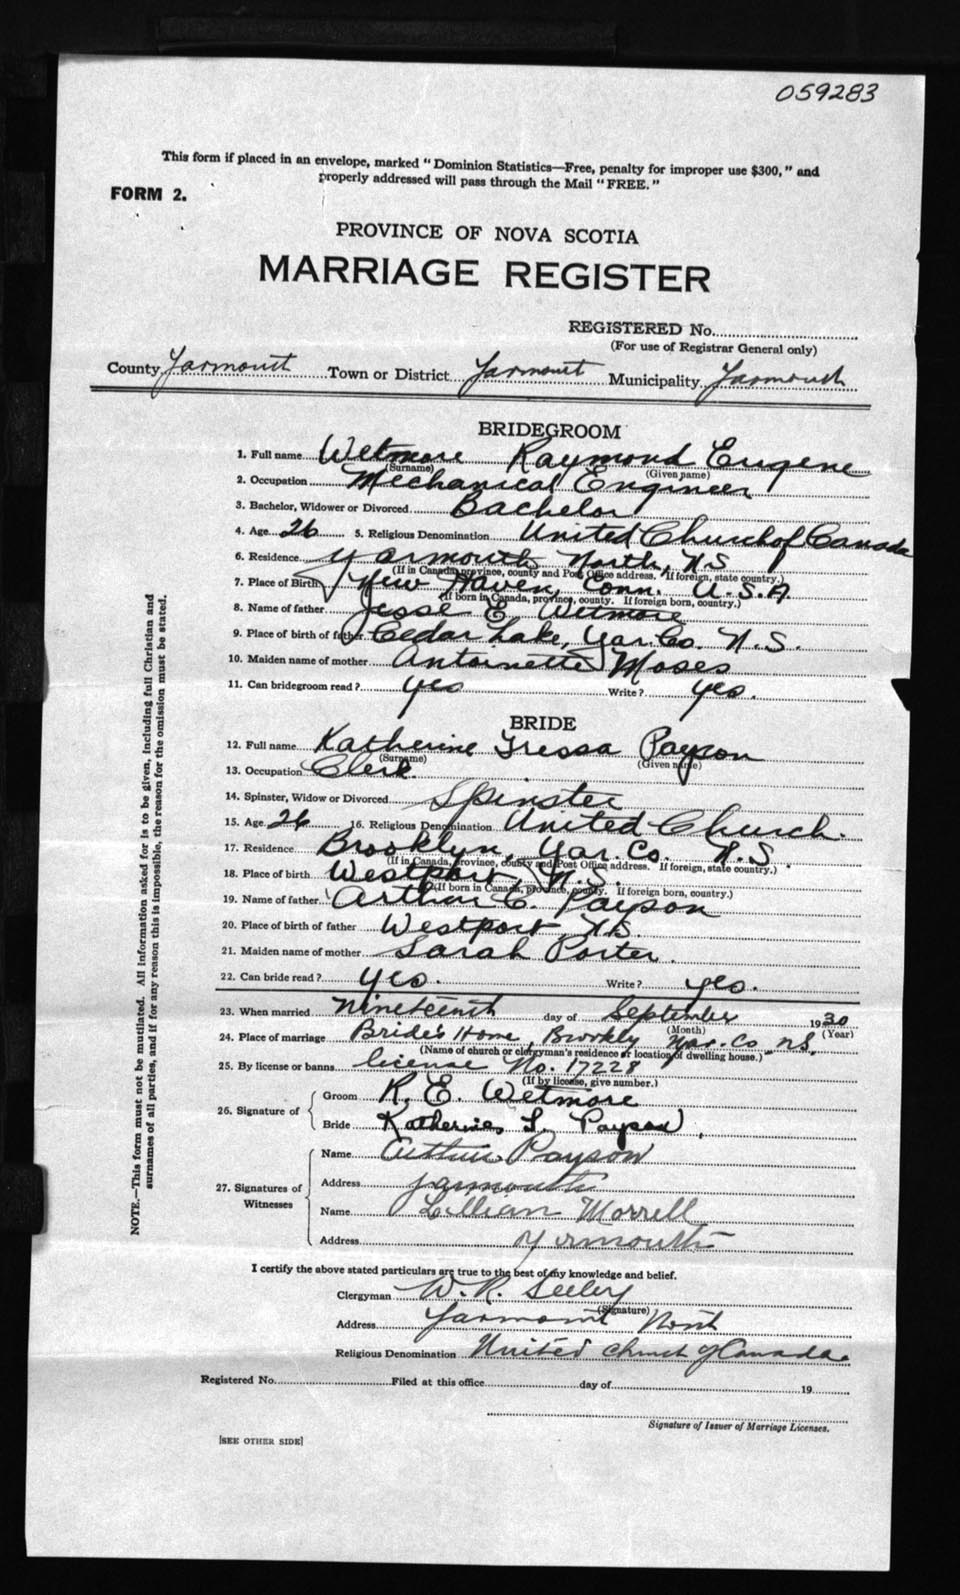 059283
This form if placed in an envelope, marked "Dominion Statistics—Free, penalty for improper use $300," and
properly addressed will pass through the Mail "FREE."
FORM 2.
PROVINCE OF NOVA SCOTIA
MARRIAGE REGISTER
REGISTERED No.
(For use of Registrar General only)
County Yarmouth Town or District Yarmouth Municipality Yarmouth
BRIDEGROOM
1. Full name Wetmore Raymond Eugene
(Surname) (Given name)
2. Occupation Mechanical Engineer
3. Bachelor, Widower or Divorced Bachelor
4. Age 26 5. Religious Denomination United Church of Canada
6. Residence Yarmouth North, N.S
(If in Canada, province, county and Post Office address. If foreign, state country.)
7. Place of Birth New Haven, Conn. U.S.A.
(If born in Canada, province, county. If foreign born, country.)
8. Name of father Jesse E. Wetmore
9. Place of birth of father Cedar Lake, Yar. Co. N.S.
10. Maiden name of mother Antoinette Moses
11. Can bridegroom read? yes Write? yes.
BRIDE
12. Full name Katherine Tressa Payson
(Surname) (Given name)
13. Occupation Clerk
14. Spinster, Widow or Divorced Spinster
15. Age 26 16. Religious Denomination United Church.
17. Residence Brooklyn, Yar. Co. N.S.
(If in Canada, province, county and Post Office address. If foreign, state country.)
18. Place of birth Westport, N.S.
(If born in Canada, province, county. If foreign born, country.)
19. Name of father Arthur C. Payson
20. Place of birth of father Westport N.S.
21. Maiden name of mother Sarah Porter.
22. Can bride read? yes. Write? yes.
23. When married nineteenth day of September 1930
(Month) (Year)
24. Place of marriage Bride's Home, Brookly Yar. Co N.S.
(Name of church or clergyman's residence or location of dwelling house.)
25. By license or banns license No. 17228
(If by license, give number.)
26. Signature of
Groom R. E. Wetmore
Bride Katherine T. Payson
27. Signatures of Witnesses
Name Arthur Payson
Address Yarmouth
Name Lillian Morrell
Address Yarmouth
I certify the above stated particulars are true to the best of my knowledge and belief.
Clergyman W. R. Seeley
(Signature)
Address Yarmouth North
Religious Denomination United Church of Canada.
Registered No. Filed at this office day of 19
Signature of Issuer of Marriage Licenses.
[SEE OTHER SIDE]
NOTE.—This form must not be mutilated. All information asked for is to be given, including full Christian and
surnames of all parties, and if for any reason this is impossible, the reason for the omission must be stated.